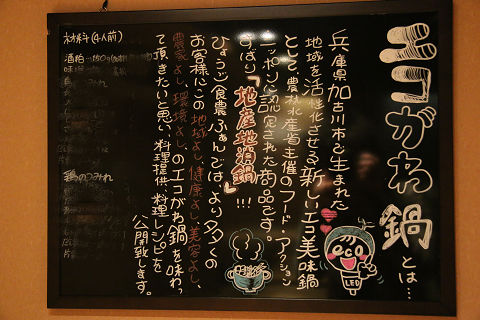 エコがわ鍋とは…
兵庫県加古川市で生まれた
地域を活性化させる新しいエコ美味鍋
として農林水産省主催のフード・アクション
ニッポンに認定された商品です。
ずばり「地産地消鍋」!!!
ひょうご食農ふぁんどでは、より多くの
お客様にこの地域よし、健康よし、美容よし、
農家よし、環境よし、のエコがわ鍋を味わっ
て頂きたいと思い、料理提供、料理レシピを
公開致します。
LED
材料(4人前)
酒粕
鶏のつみれ